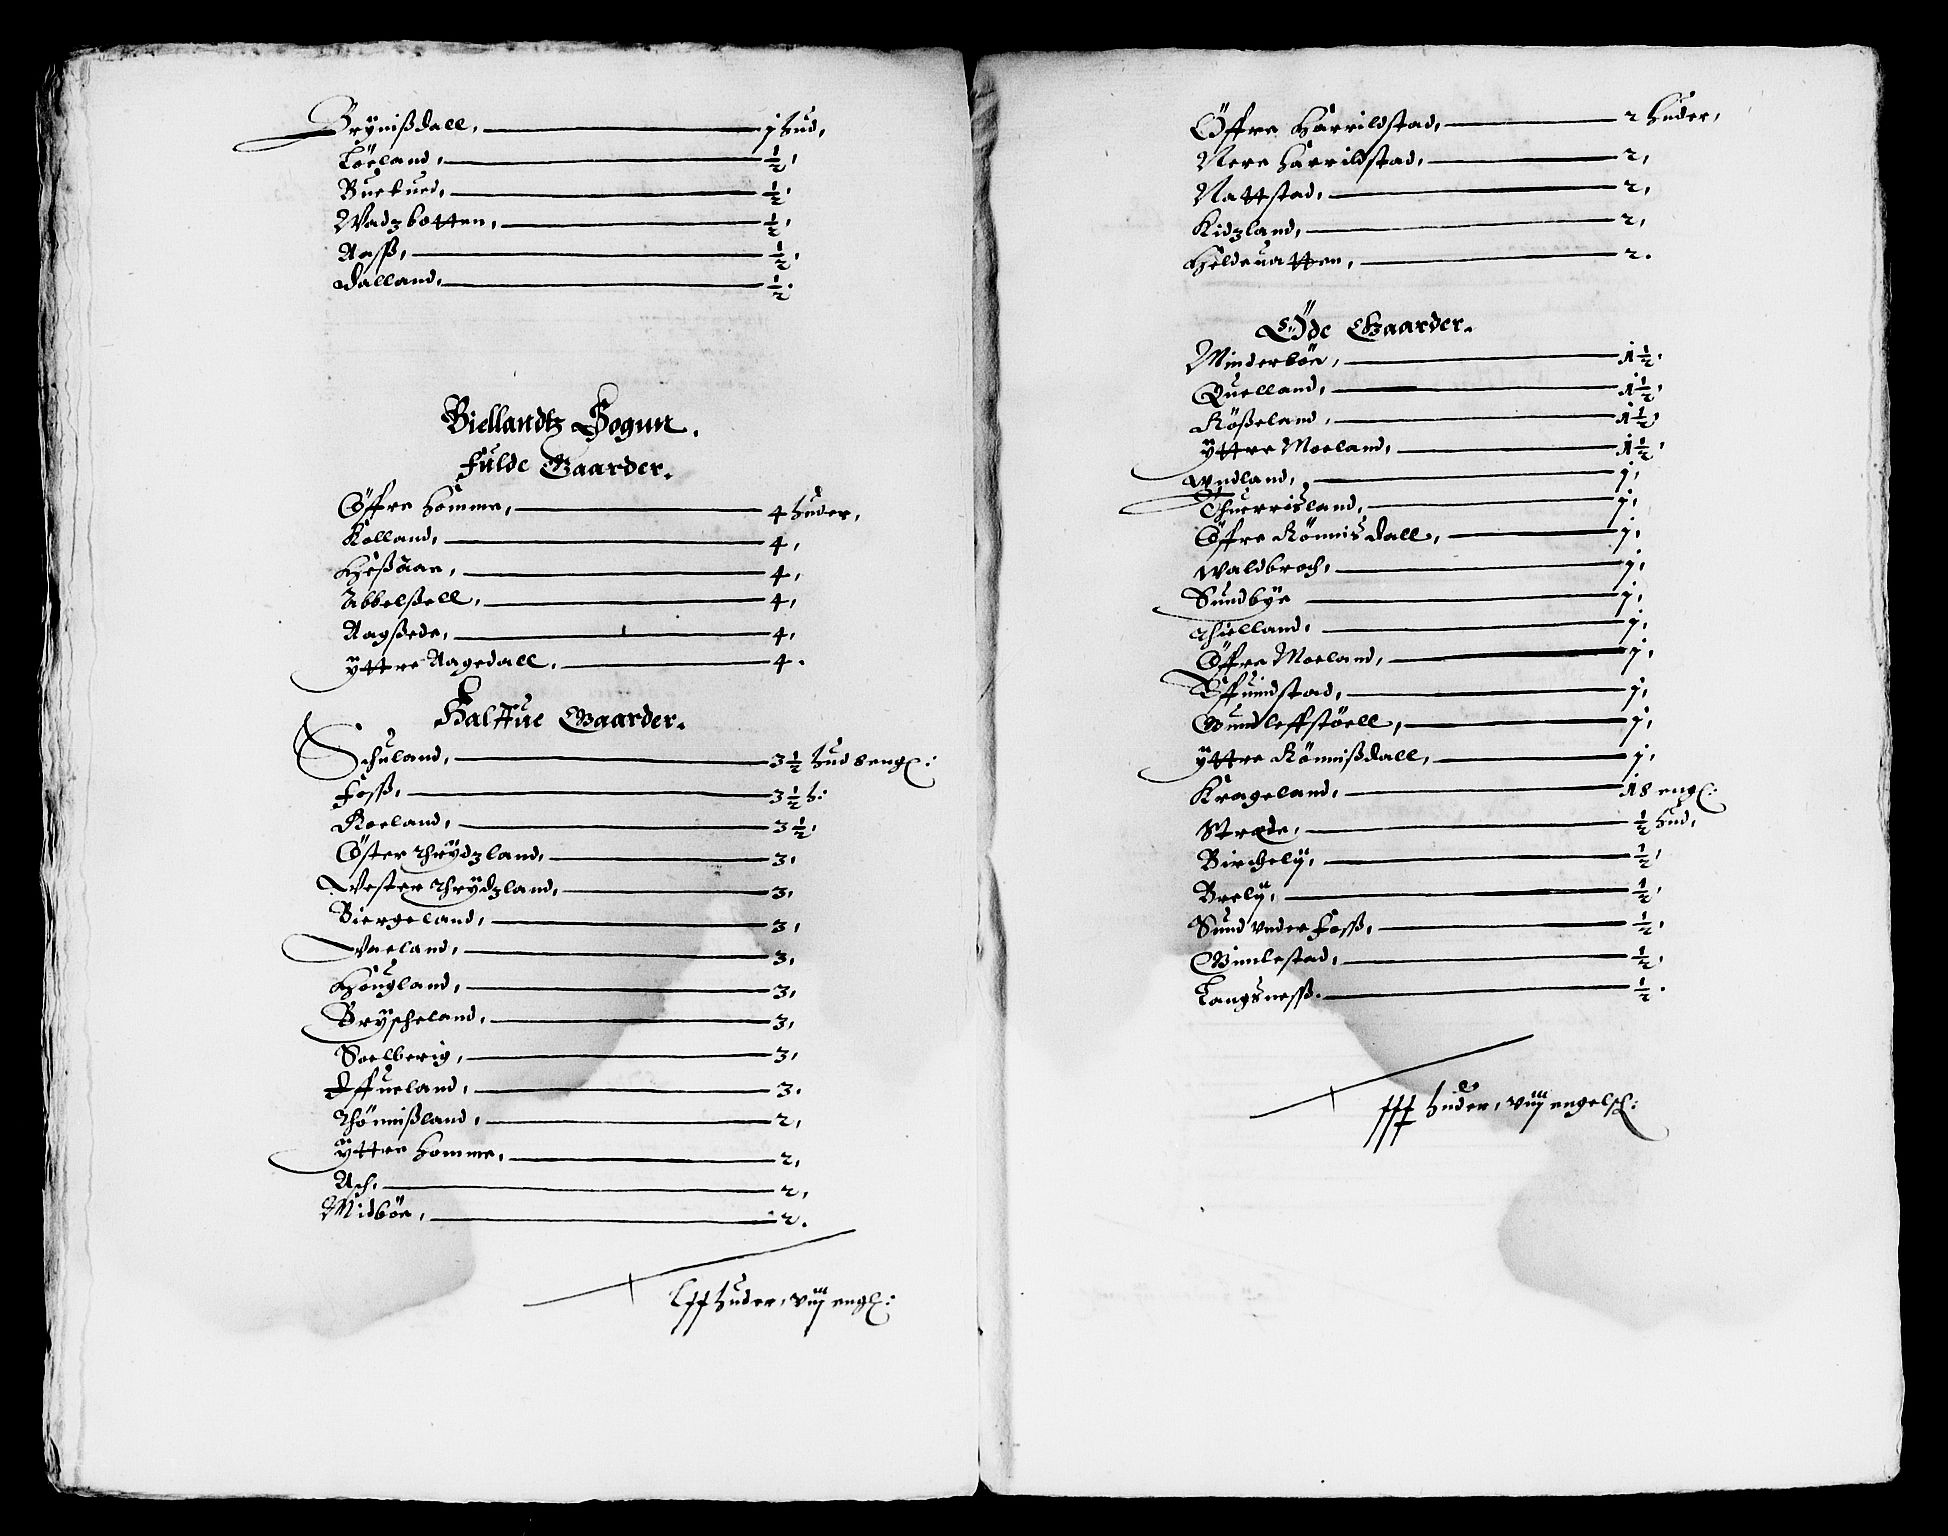 Brÿnißdall, j hud,
Löeland, ½,
Bueknud, ½,
Wadzbotten, ½,
Aaß, ½,
Dalland, ½.
Biellandtz Sogun.
Fulde Gaarder.
Öffre Homme, 4 huder,
Kolland, 4,
Heßaae, 4,
Abbelßell, 4,
Aagßede, 4,
ÿttre Aagedall, 4.
Halffue Gaarder.
Schuland, 3½ hud 8 engl:
Foß, 3½ h:
Roeland, 3½,
Öster Thrÿdzland, 3,
Wester Thrÿdzland, 3,
Biergeland, 3,
Waeland, 3,
Hougland, 3,
Brÿscheland, 3,
Soelberig, 3,
Effueland, 3.
Thönnißland, 2,
ÿttre Homme, 2,
Ask, 2,
Midböe, 2.
huder, viij engl:
Öffre Harrildstad, 2 huder,
Nere Harrildstad, 2,
Nattstad, 2,
Kidzland, 2,
Heldeuatten, 2.
Öde Gaarder.
Minderböe, 1½.
Quelland, 1½,
Rößeland, 1½
ÿttre Moeland, 1½.
Wndland, j,
Thuerrisland, j,
Öffre Rönnisdall, j,
Waldbroch, j,
Sundbÿe j,
Thielland, j,
Öffre Moeland, j,
Effuindstad, j,
Gunleffstöell, j,
ÿttre Rönnißdall, j,
Krageland, 18 engl:
Stræde, ½ hud,
Birchelÿ, ½,
Brelÿ, ½,
Sund vnder Foß, ½,
Gimlestad, ½,
Langsneß. ½.
huder, viij engelsch: